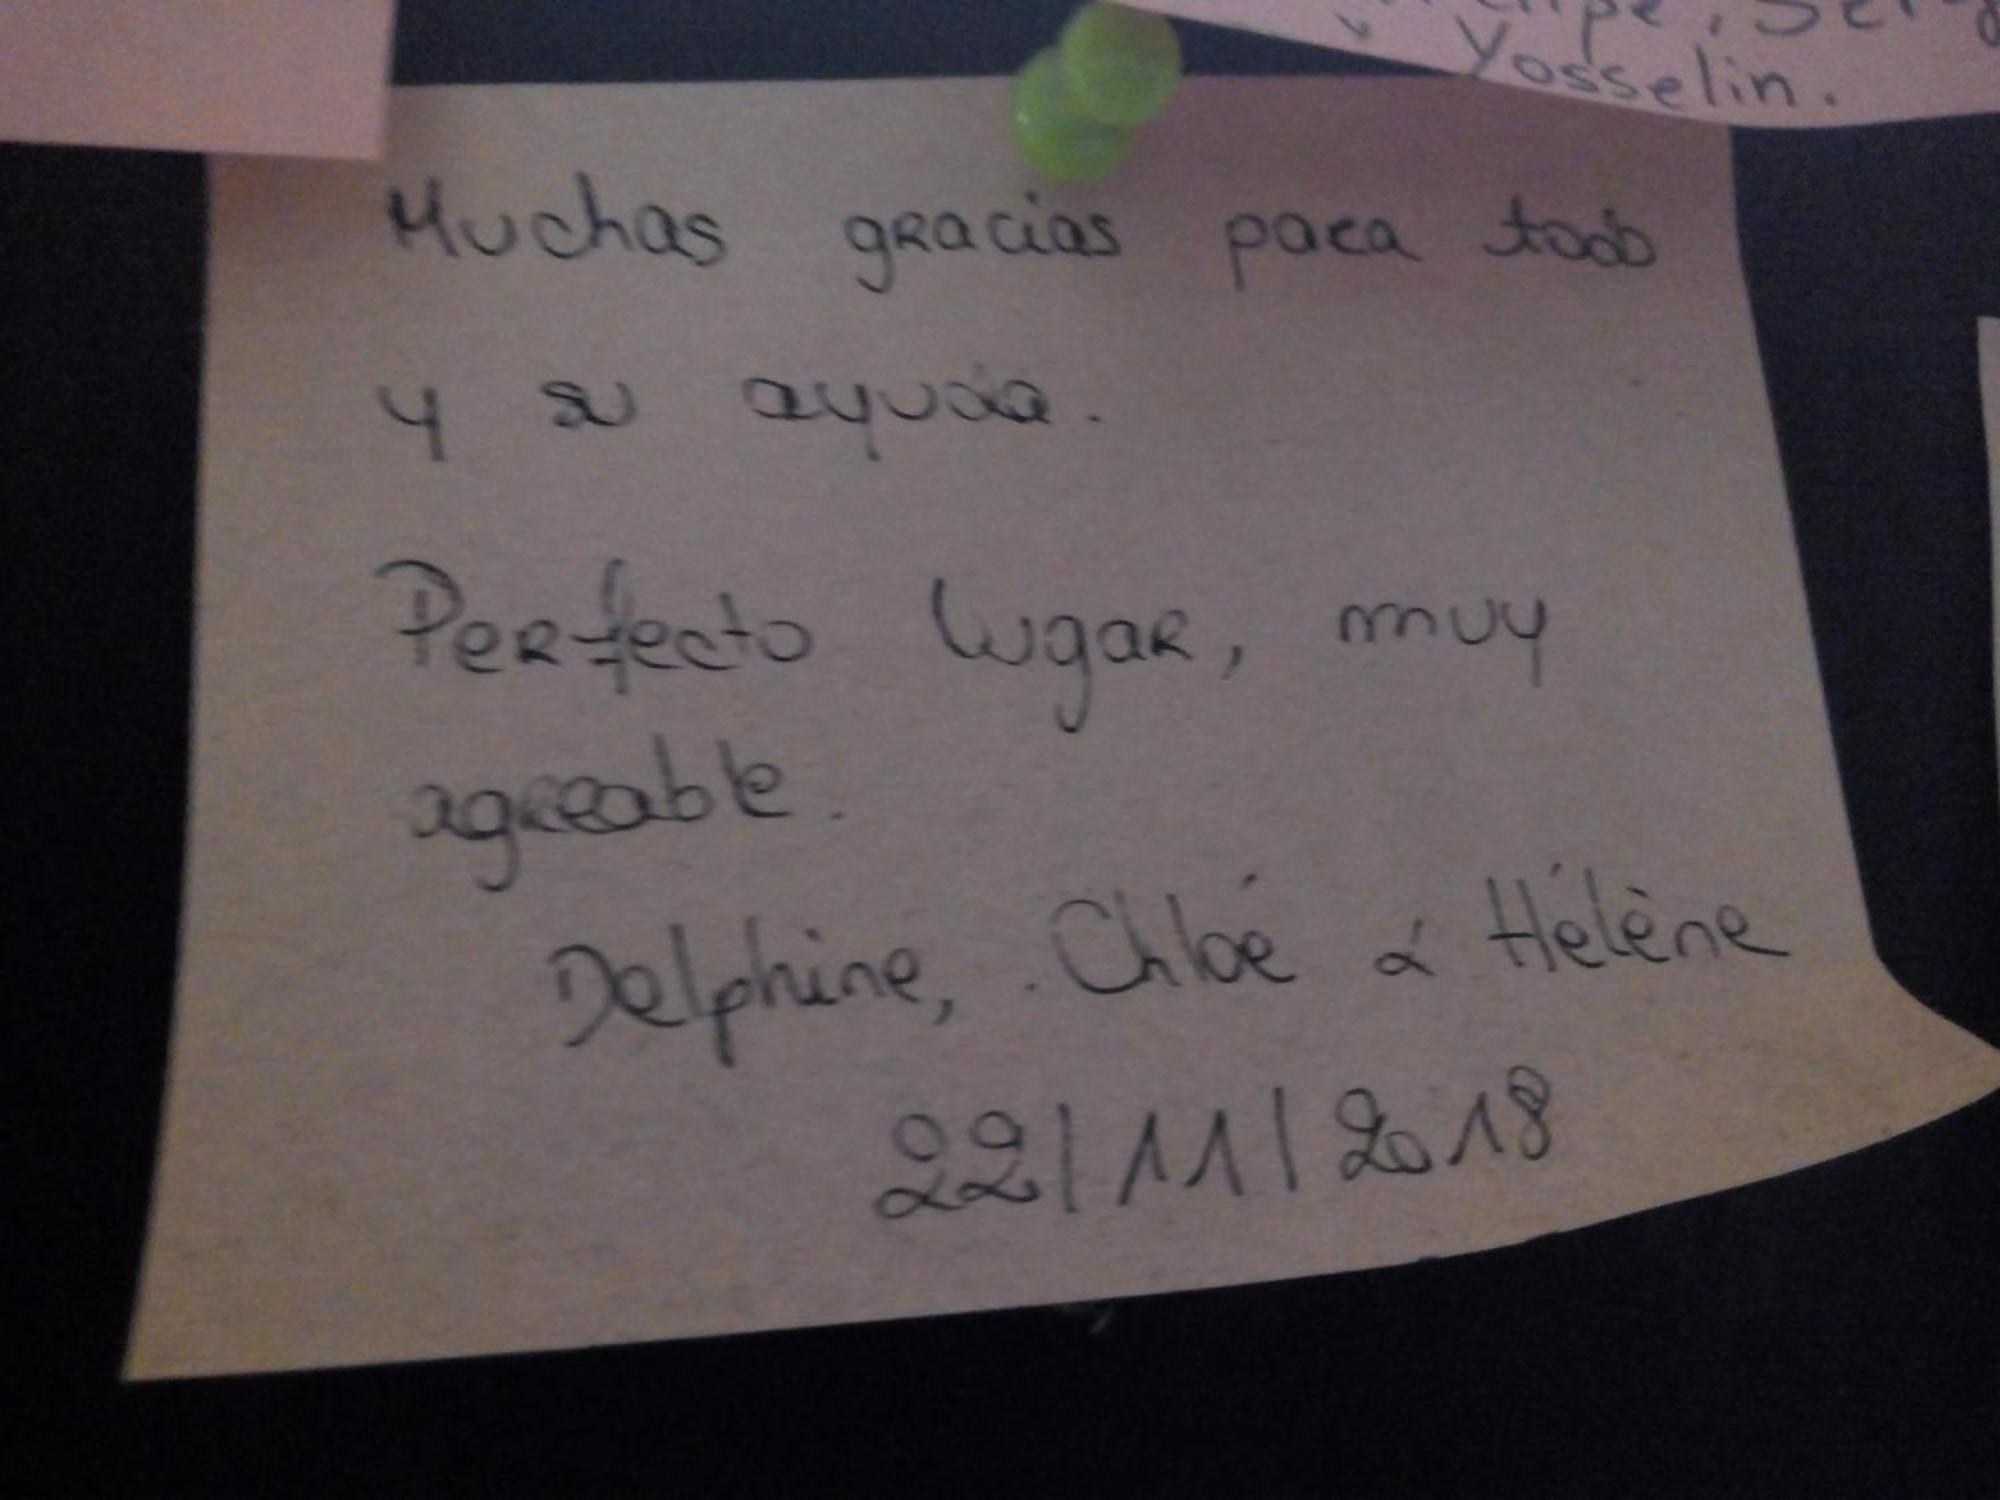 Yosselin.
Muchas gracias para todo
y su ayuda.
Perfecto lugar, muy
agreable.
Delphine, Chloé & Hélène
22/11/2018